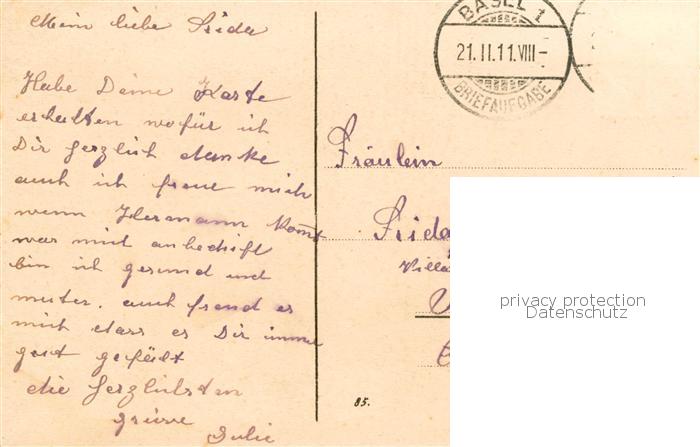 Mein liebe Frida
Habe Deine Karte
erhalten wofür ich
Dir herzlich danke
auch ich freue mich
wenn Hermann komt
was mich anbedrift
bin ich gesund und
muter. auch freud es
mich dass es Dir immer
gout gefält
die herzlichsten
Grüsse
Julie
BASEL 1
21.II.11.VIII-
BRIEFAUFGABE
Fräulein
Frida
Villa
privacy protection
Datenschutz
85.